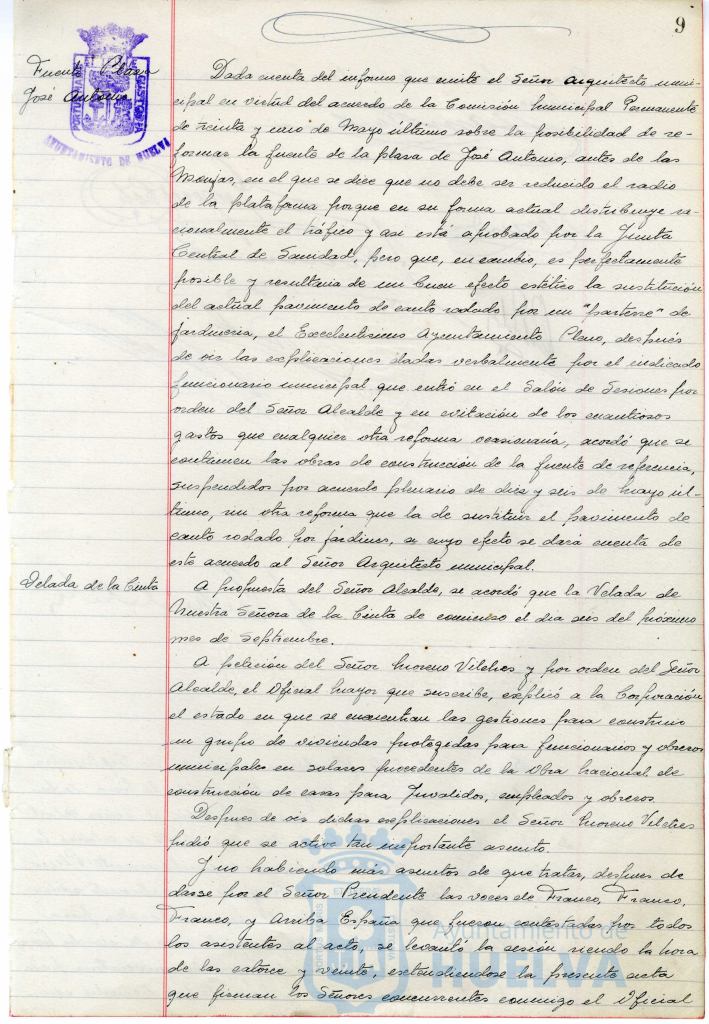 9
Fuente Plaza
José Antonio
AYUNTAMIENTO DE HUELVA
Dada cuenta del informe que emite el Señor Arquitecto muni-
cipal en virtud del acuerdo de la Comisión Municipal Permanente
de treinta y uno de Mayo último sobre la posibilidad de re-
formar la fuente de la plaza de José Antonio, antes de las
Monjas, en el que se dice que no debe ser reducido el radio
de la plataforma porque en su forma actual distribuye ra-
cionalmente el tráfico y asi está aprobado por la Junta
Central de Sanidad, pero que, en cambio, es perfectamente
posible y resultaria de un buen efecto estético la sustitución
del actual pavimento de canto rodado por un "parterre" de
jardineria, el Excelentisimo Ayuntamiento Pleno, después
de oir las explicaciones dadas verbalmente por el indicado
funcionario municipal que entró en el Salón de Sesiones por
orden del Señor Alcalde y en evitación de los cuantiosos
gastos que cualquier otra reforma ocasionaria, acordó que se
continuen las obras de construcción de la fuente de referencia,
suspendidos por acuerdo plenario de diez y seis de mayo úl-
timo, sin otra reforma que la de sustituir el pavimento de
canto rodado por jardines, a cuyo efecto se dará cuenta de
este acuerdo al Señor Arquitecto municipal.
Velada de la Cinta
A propuesta del Señor Alcalde, se acordó que la Velada de
Nuestra Señora de la Cinta de comienzo el dia seis del próximo
mes de Septiembre.
A petición del Señor Moreno Vilches y por orden del Señor
Alcalde, el Oficial Mayor que suscribe, explicó a la Corporación
el estado en que se encuentran las gestiones para construir
un grupo de viviendas protegidas para funcionarios y obreros
municipales en solares procedentes de la Obra Nacional de
construcción de casas para Inválidos, empleados y obreros
Despues de oir dichas explicaciones el Señor Moreno Vilches
pidió que se active tan importante asunto.
Y no habiendo más asuntos de que tratar, despues de
darse por el Señor Presidente las voces de Franco, Franco,
Franco, y Arriba España que fueron contestadas por todos
los asistentes al acto, se levantó la sesión siendo la hora
de las catorce y veinte, extendiendose la presente acta
que firman los Señores concurrentes conmigo el Oficial
Ayuntamiento de
HUELVA